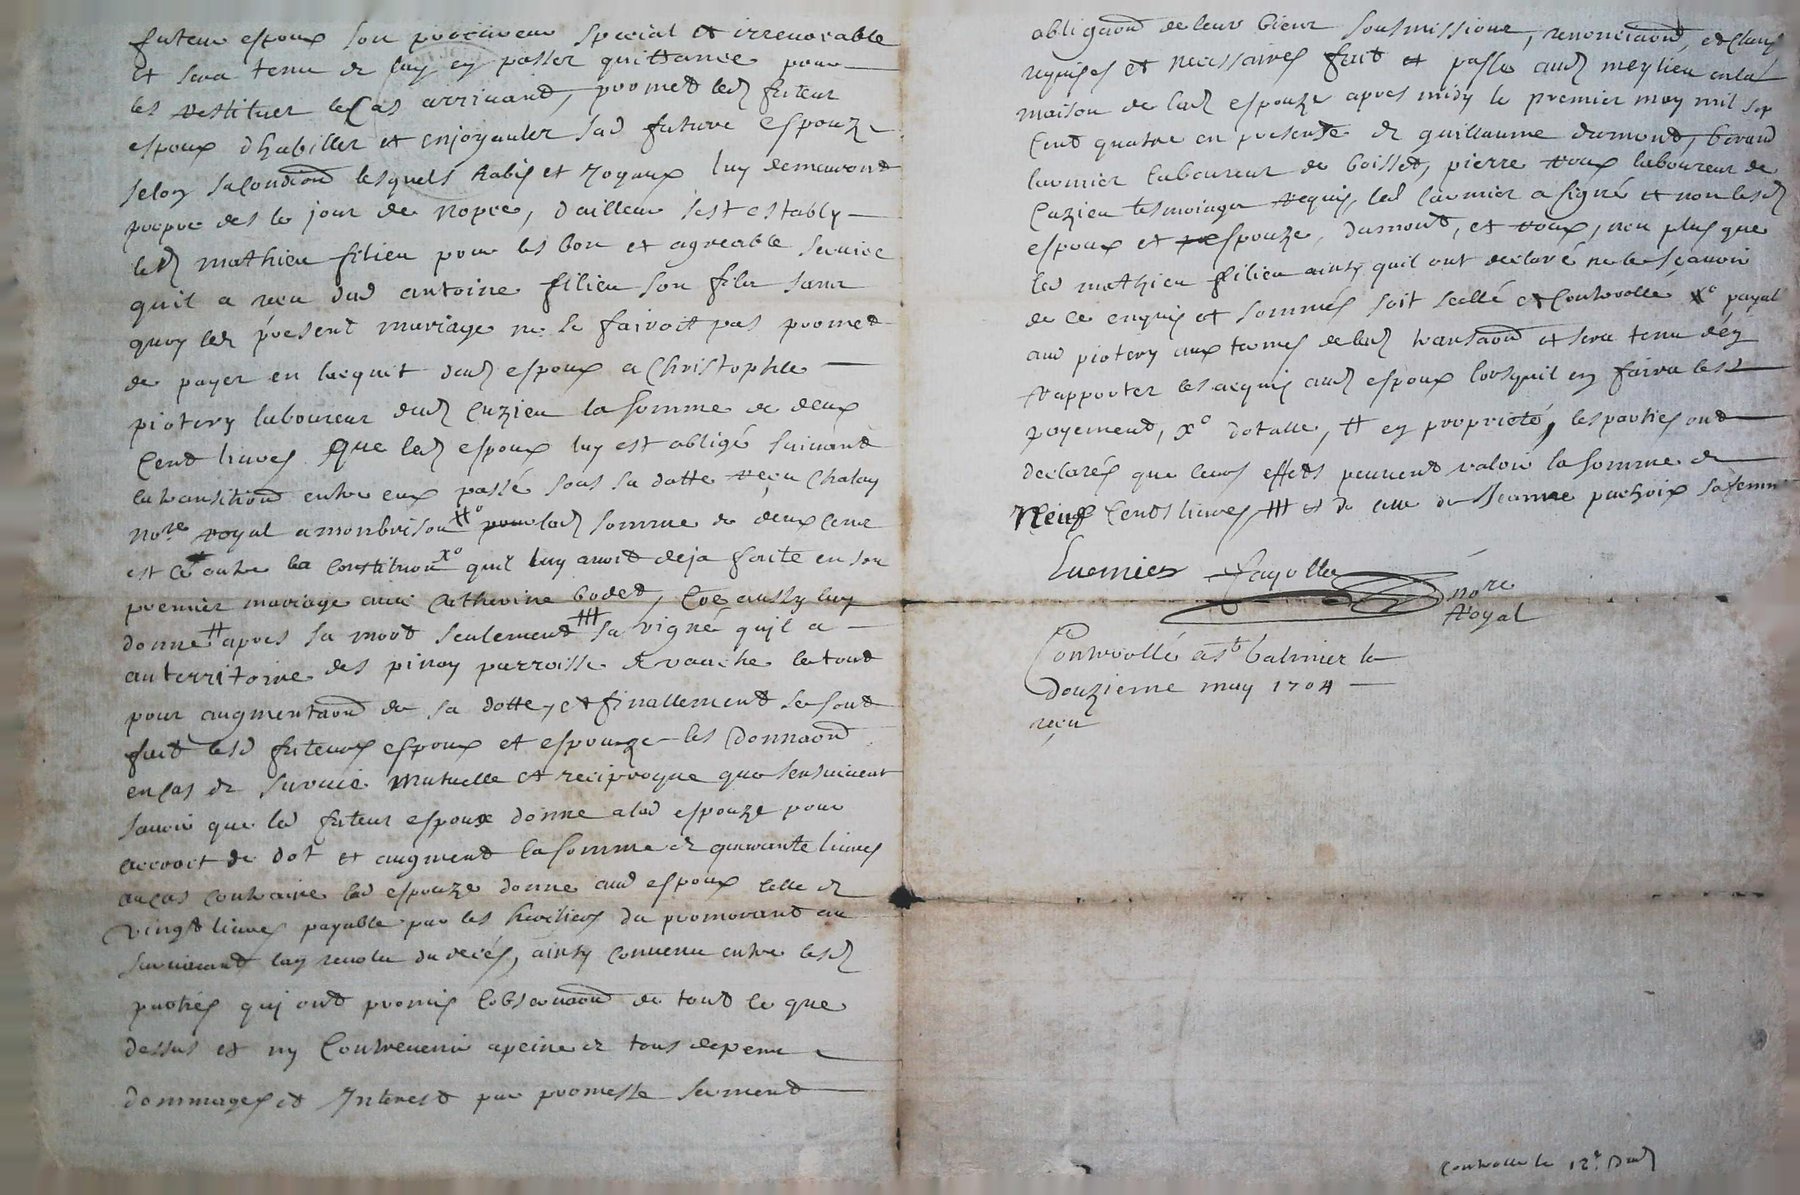 futeur espoux son procureur special et irrevocable
et sera tenu de luy en passer quittance pour
les restituer le Cas arrivant, promet led futeur
espoux d'habiller et enjoyauler sad future espouze
selon sa Condiaon lesquels habis et Joyaux luy demeuront
propre des le jour de nopce, d'ailleur s'est estably
led mathieu filieu pour les bon et agreable service
quil a receu dud antoine filieu son fils sans
quoy led present mariage ne se fairoit pas promet
de payer en l'acquit dud espoux a Christophle
piotery laboureur dud Cuzieu la somme de deux
Cent livres que led espoux luy est obligé suivant
la transaction entre eux passé sous sa datte receu Chalay
nore royal a monbrison xo lad somme de deux Cent
est Ce outre la Constituon xo quil luy avoit deja faite en son
premier mariage avec Catherine bodet, Coe aussy luy
donne # apres sa mort seulement sa vigne quil a
au territoire des pinay parroisse de vauche le tout
pour augmentaon de sa dotte, et finallement se sont
fait lesd futeurs espoux et espouze les Donnaons
en Cas de survie mutuelle et reciproque que sensuivent
savoir que led futeur espoux donne a lad espouze pour
accroit de dot et augment la somme de quarante livres
au Cas contraire lad espouze donne aud espoux Celle de
vingt livres payable par les heritiers du premourant au
survivant l'an revolu du decés, ainsy Convenu entre lesd
parties qui ont promis l'observaon de tout Ce que
dessus et ny Contrevenir a peine de tous depens
dommages et Interest par promesse serment
obligaon de leur biens sousmissions, renonciaons, et Clauses
requises et necessaires fait et passé aud meylieu en la
maison de lad espouze apres midy le premier may mil sep
Cent quatre en presente de guillaume dumont, berand
laurnier laboureur de boisset, pierre roux laboureur de
Cuzieu tesmoings requis, led laurnier a signé et non lesd
espoux et espouze, dumont, et roux, non plus que
led mathieu filieu ainsy quil ont declaré ne le sçavoir
de Ce enquis et sommés soit scellé et Controollé xo payab
aud piotery aux termes de lad transaon et sera tenu d'en
rapporter les acquis aud espoux lorsquil en faira lesd
payement, xo dotalle, # en proprieté, les parties ont
declarés que leurs effets peuvent valoir la somme de
Neuf Cents livres # et de celle de Jeanne pachoix sa femme
Luernier Fayolle nore
Royal
Controollé a st balmier le
Douzieme may 1704
receu
Controollé le 12e Dud